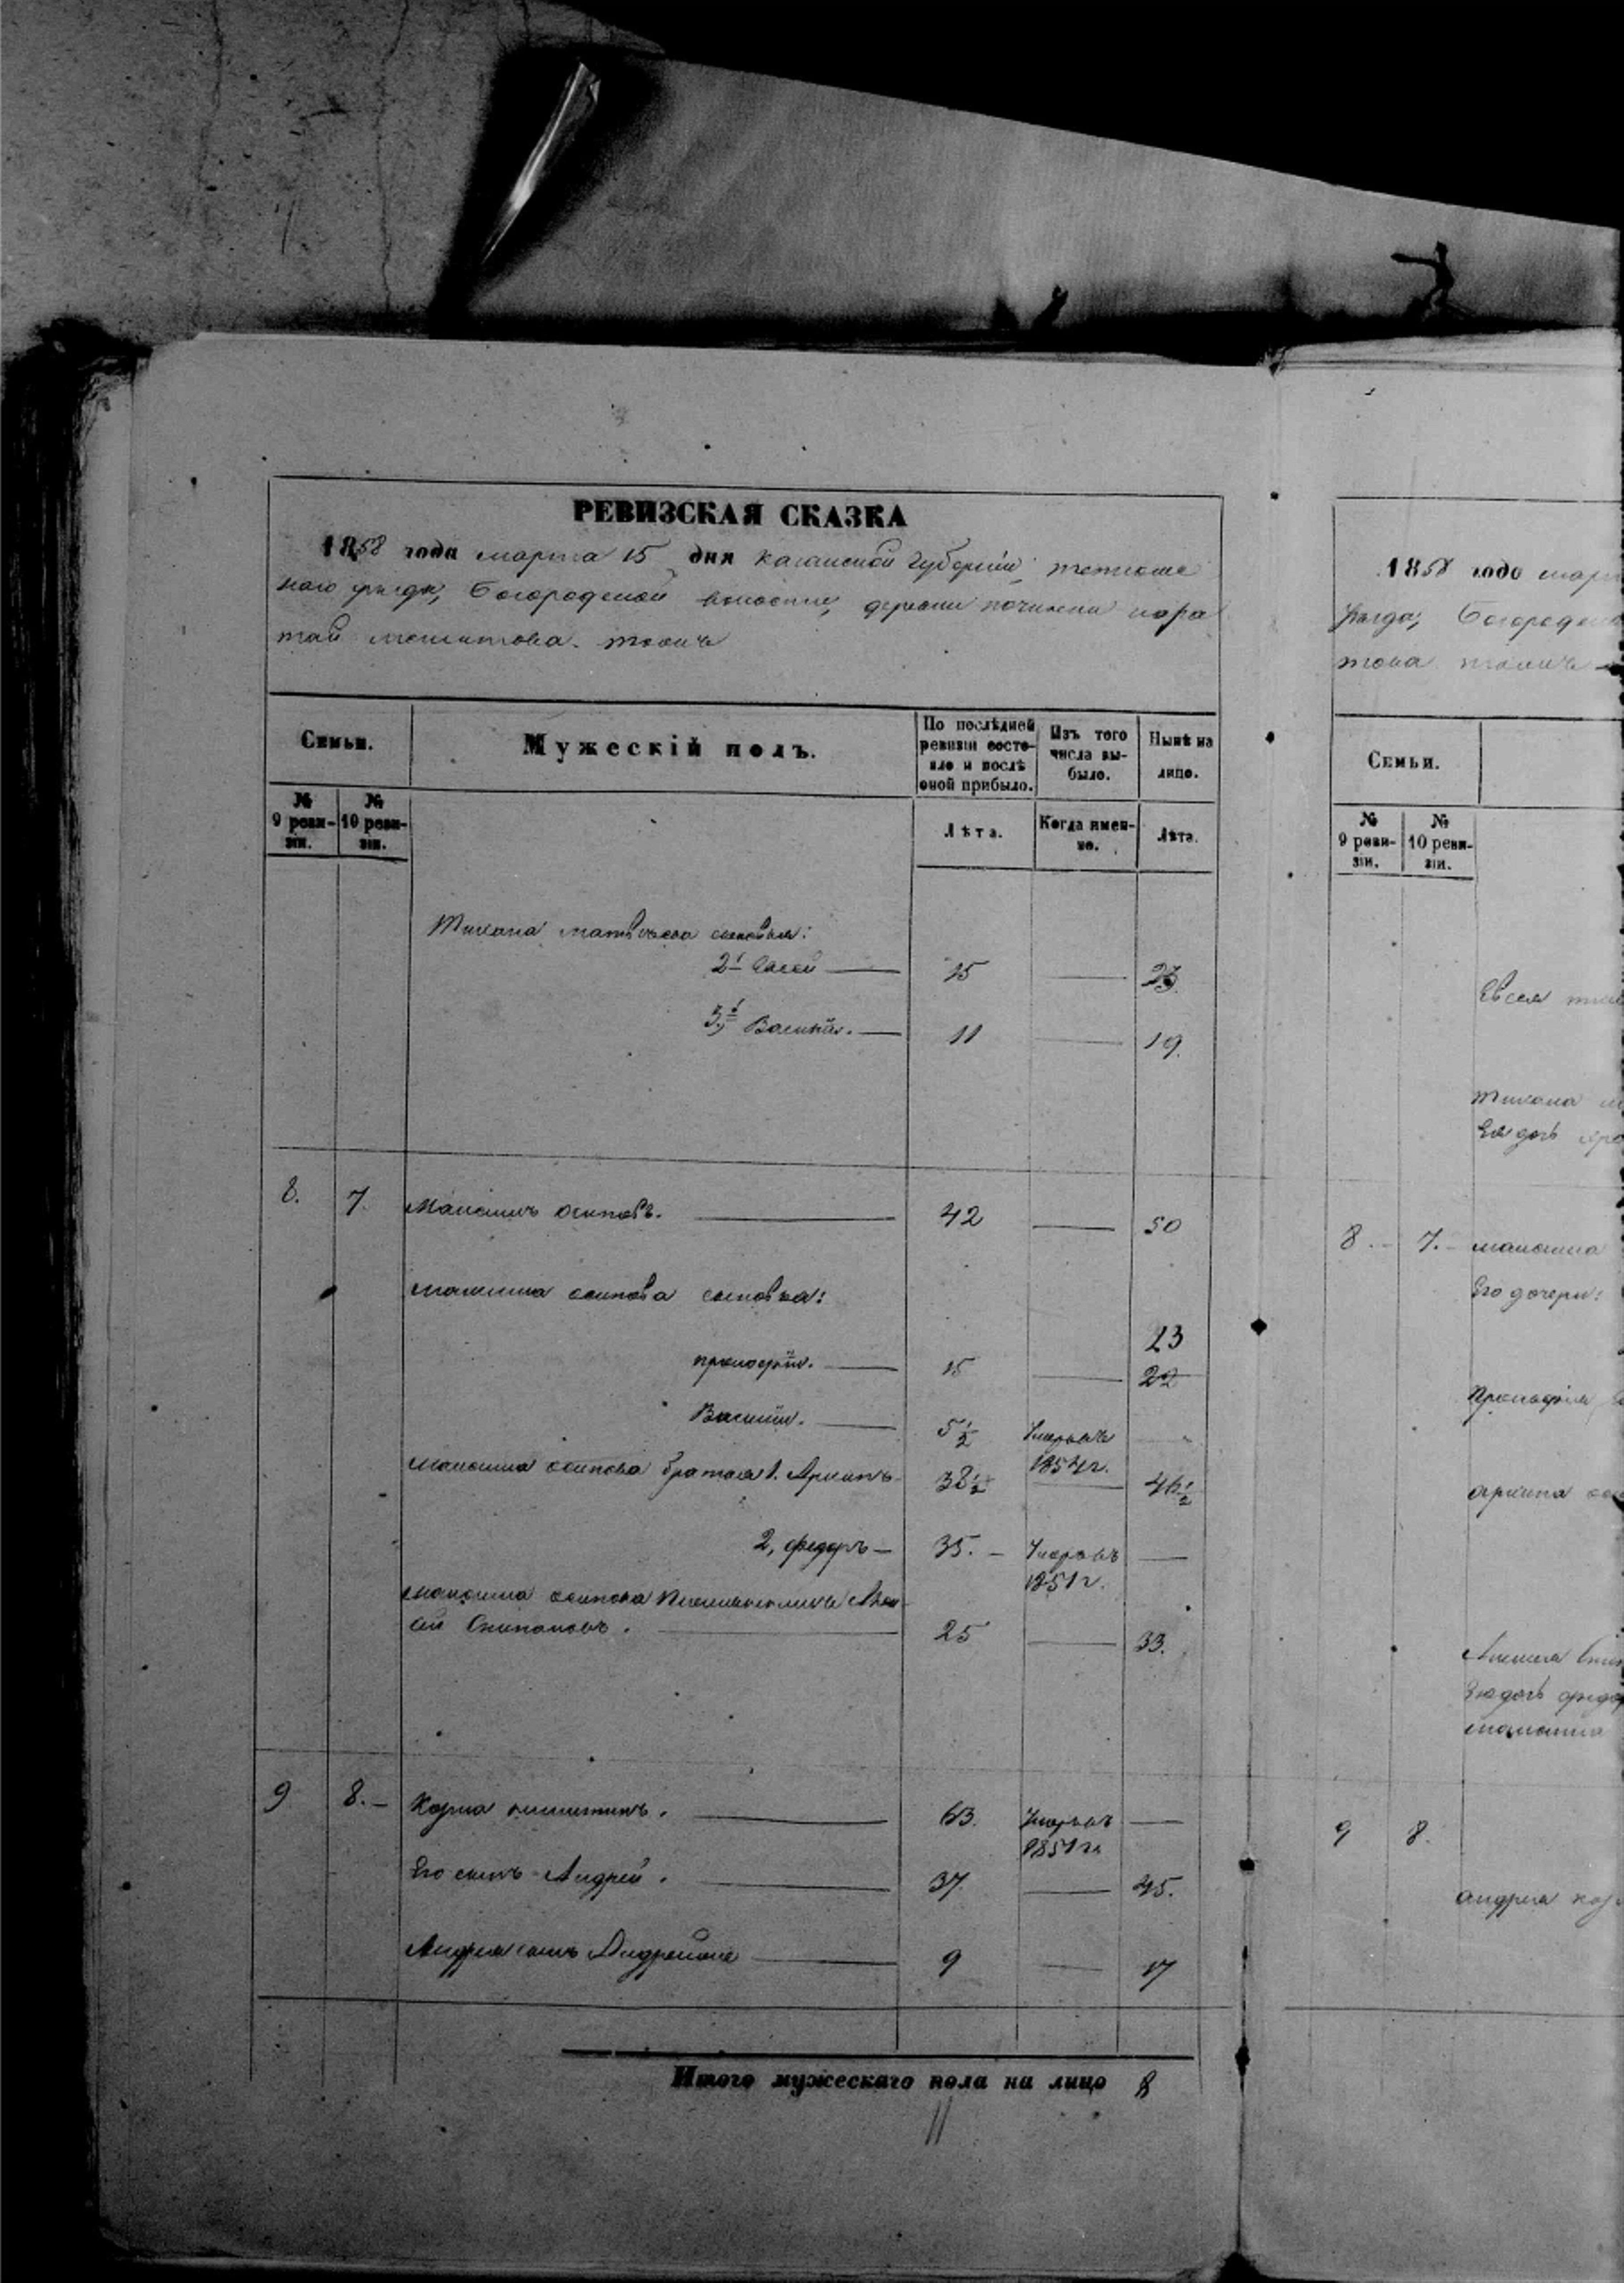 РЕВИЗСКАЯ СКАЗКА
1858 года марта 15 дня Казанской губернии, тетюше
наго уезда, Богородской волости, деревни починки кара
тай
Семьи.
Мужескій полъ.
По послѣдней ревизіи состо-
яло и послѣ оной прибыло.
Изъ того числа вы-
было.
Нынѣ на лицо.
№ 9 реви-
зіи.
№ 10 реви-
зіи.
Лѣта.
Когда имен-
но.
Лѣта.
Тихона Матвѣева сыновья:
2й Евсей 15 23
3й Василій. 11 19.
8. 7. Максимъ Осиповъ. 42 50
Максима Осипова сыновья:
23
Прокофій. 15 22
Василій. 5½ Умеръ въ
1854 г.
Максима Осипова братья 1. Архипъ 38½ 46½
2, Федоръ 35. Умеръ въ
1851 г.
Максима Осипова племянникъ Алек
сѣй 25 33.
9 8. Козма Никитинъ. 63. Умеръ въ
1851 г.
Его сынъ Андрей. 37 45.
Андрея сынъ 9 17
Итого мужескаго пола на лицо 8
1858 года мар
уезда, Богородск
Семьи.
№ 9 реви-
зіи.
№ 10 реви-
зіи.
Евсея
Тихона
Ея дочь
8. 7. Максима
Его дочери:
Прокофія
Архипа
Алексея
Его дочь
Максима
9 8.
Андрея